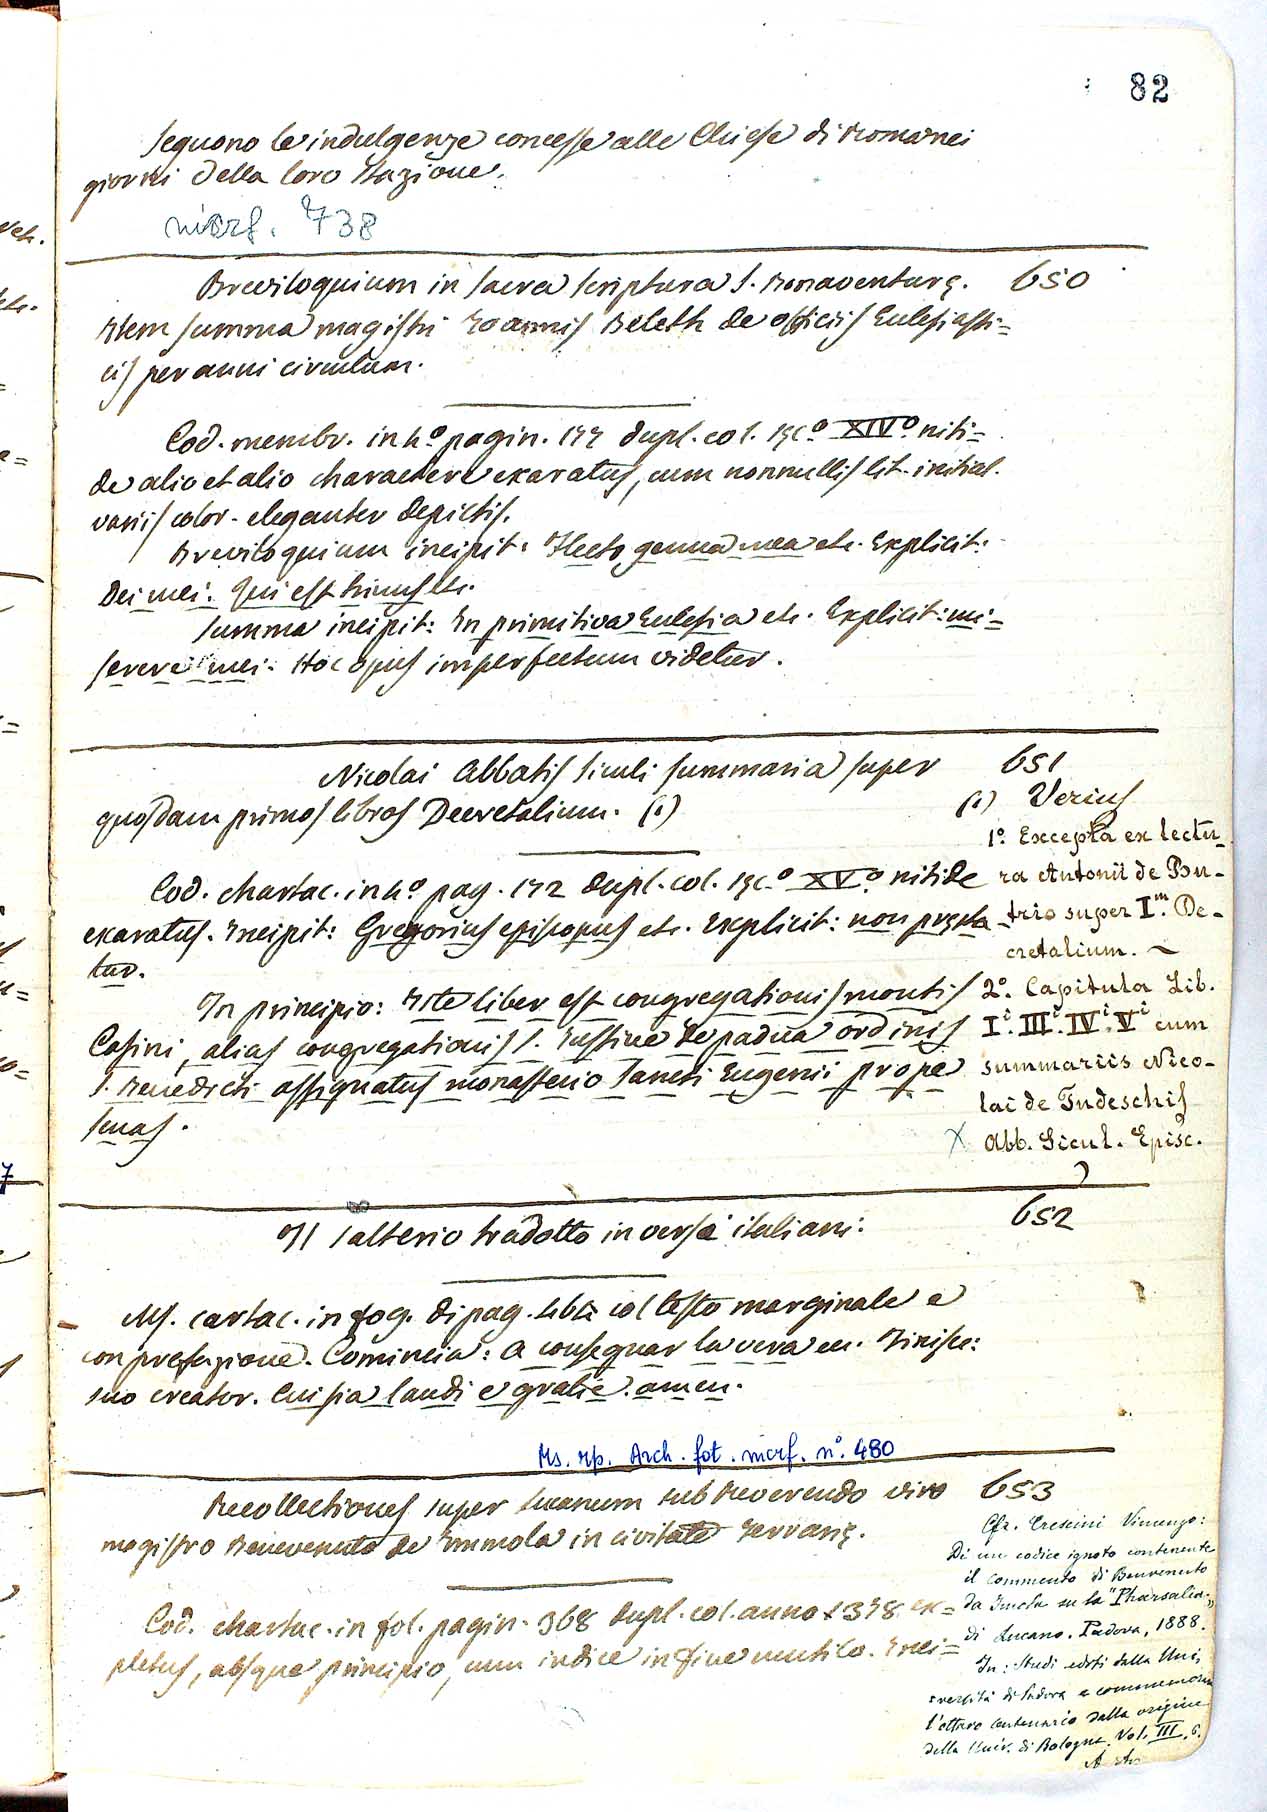 82
Seguono le indulgenze concesse alle Chiese di Roma nei
giorni della loro Stazione.
micrf. 738
Breviloquium in Sacra Scriptura S. Bonaventurę. 650
Item Summa magistri Ioannis Beleth de officiis Eclesiasti=
cis per anni circulum.
Cod. membr. in 4º pagin. 177 dupl. col. sęc.º XIVº. niti=
de alio et alio charactere exaratus, cum nonnullis lit. initial.
variis color. eleganter depictis.
Breviloquium incipit: Flecto genua mea etc. Explicit:
Dei mei: Qui est trinus etc.
Summa incipit: In primitiva Eclesia etc. Explicit: mi=
serere mei. Hoc opus imperfectum videtur.
Nicolai Abbatis Siculi summaria super 651
quosdam primos libros Decretalium. (1)
Cod. chartac. in 4º pag. 172 dupl. col. sęc.º XVº. nitide
exaratus. Incipit: Gregorius episcopus etc. Explicit: non pręsta=
tur.
In principio: Iste liber est congregationis montis
Casini, alias congregationis S. Iustine de padua ordinis
S. Benedicti assignatus monasterio Sancti Eugenii prope
Senas.
(1) Verius
1º. Excepta ex lectu-
ra Antonii de Bu-
trio super Iᵐ. De-
cretalium. ~
2º. Capitula Lib.
Iⁱ. IIIⁱ. IVⁱ. Vⁱ cum
summariis Nico-
lai de Tudeschis
X Abb. Sicul. Episc.
Il Salterio tradotto in versi italiani. 652
Ms. cartac. in fog. di pag. col testo marginale e
con prefazione. Comincia: A conseguar la vera ec. Finisce:
suo creator. Cui sia laudi e gratie. amen.
Ms. rip. Arch. fot. micrf. nº. 480
Recollectiones super Lucanum sub Reverendo viro 653
magistro Benevenuto de Immola in civitate Ferrarię.
Cod. chartac. in fol. pagin. 368 dupl. col. anno 1378 ex=
pletus, absque principio, cum indice in fine mutilo. Inci=
Cfr. Crescini Vincenzo:
Di un codice ignoto contenente
il commento di Benvenuto
da Imola su la "Pharsalia"
di Lucano. Padova, 1888.
In: Studi editi dalla Uni-
versità di Padova a commemorare
l'ottavo centenario dalla origine
della Univ. di Bologna. Vol. III, 6.